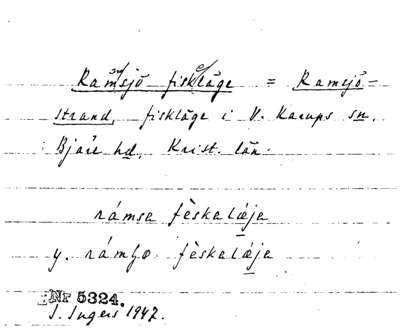 Ramsjö fiskläge = Ramsjö-
strand, fiskläge i V. Karups sn,
Bjäre hd, Krist. län.
rámsa fèskalǽja
y. rámʃo fèskalǽja
Nr 5324.
I. Ingers 1947.